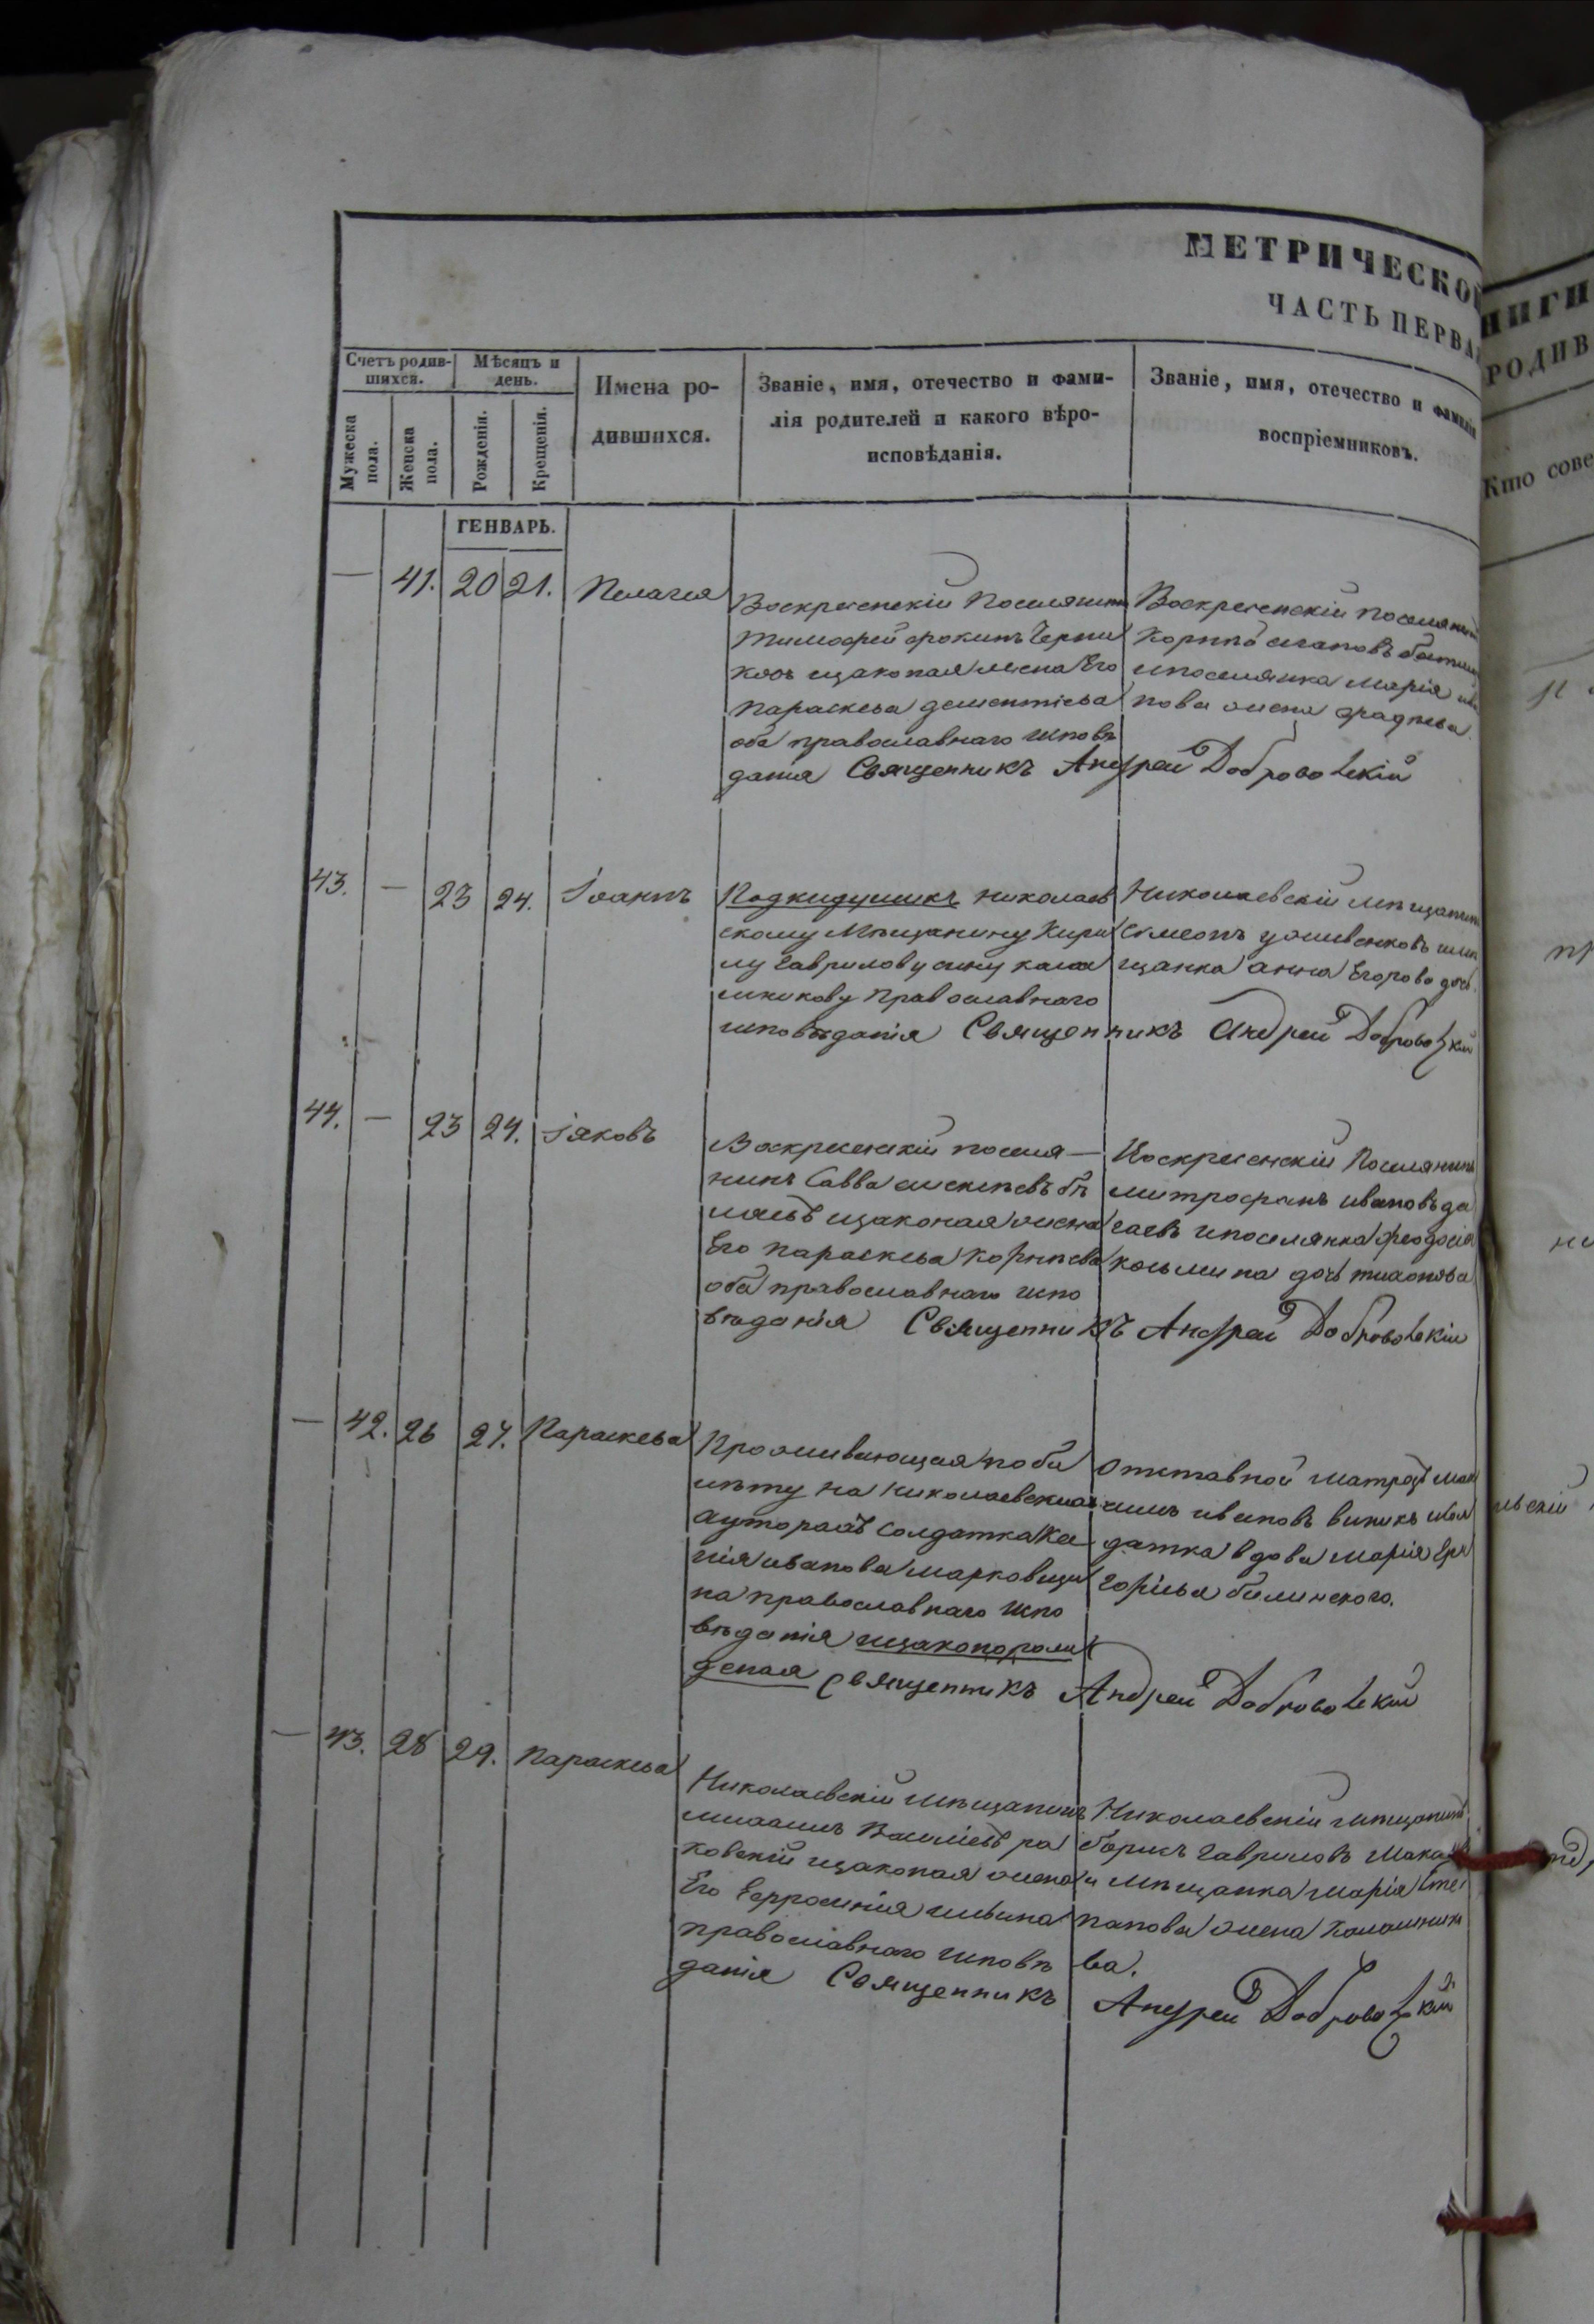 МЕТРИЧЕСКО
ЧАСТЬ ПЕРВА
Счетъ родив-
шихся.
Мѣсяцъ и
день.
Мужеска
пола.
Женска
пола.
Рожденія.
Крещенія.
Имена ро-
дившихся.
Званіе, имя, отечество и фами-
лія родителей и какого вѣро-
исповѣданія.
Званіе, имя, отечество и фамилія
воспріемниковъ.
НИГИ
РОДИВ
Кто сове
ГЕНВАРЬ.
— 41. 20 21. Пелагея
Воскресенскій Поселянинъ
Тимофей Фокинъ Черни
ковъ изаконая жена Его
Параскева дементіева
оба православнаго исповѣ
данія Священникъ Андрей Доброволскій
Воскресенскій поселянинъ
Корнѣй
ипоселянка Марія ива
нова жена
43. — 23 24. Іоаннъ
Подкидушикъ николаев
скому Мѣщанину Кири
лу Гаврилову сыну кала
шникову православнаго
исповѣданія Священникъ Андрей Доброволскій
Николаевскій мѣщанинъ
Симеонъ имѣ
щанка анна Егорова дочь
44. — 23 24. Іяковъ
Воскресенскій поселя—
нинъ Савва бѣ
изаконая жена
Его параскева Корнѣева
оба православнаго испо
вѣданія Священникъ Андрей Доброволскій
Воскресенскій Поселянинъ
митрофанъ ивановъ да
ипоселянка феодосія
козьмина дочь тихонова
— 42. 26 27. Параскева
Проживающая поби
лѣту на николаевскихъ
хуторахъ солдатка Ксе
нія иванова марковщи
на православнаго испо
вѣданія изаконорож
деная Священникъ Андрей Доброволскій
Отставной матрозъ мак
симъ ивановъ исол
датка вдова марія гри
горіева билинского.
— 43. 28 29. Параскева
Николаевскій мѣщанинъ
Василіевъ ра
ковскій изаконая жена
Его Евфросинія ильина
православнаго исповѣ
данія Священникъ Андрей Доброволскій
Николаевскій мѣщанинъ
борисъ гавриловъ
и мѣщанка марія сте
панова жена Калашнико
ва.